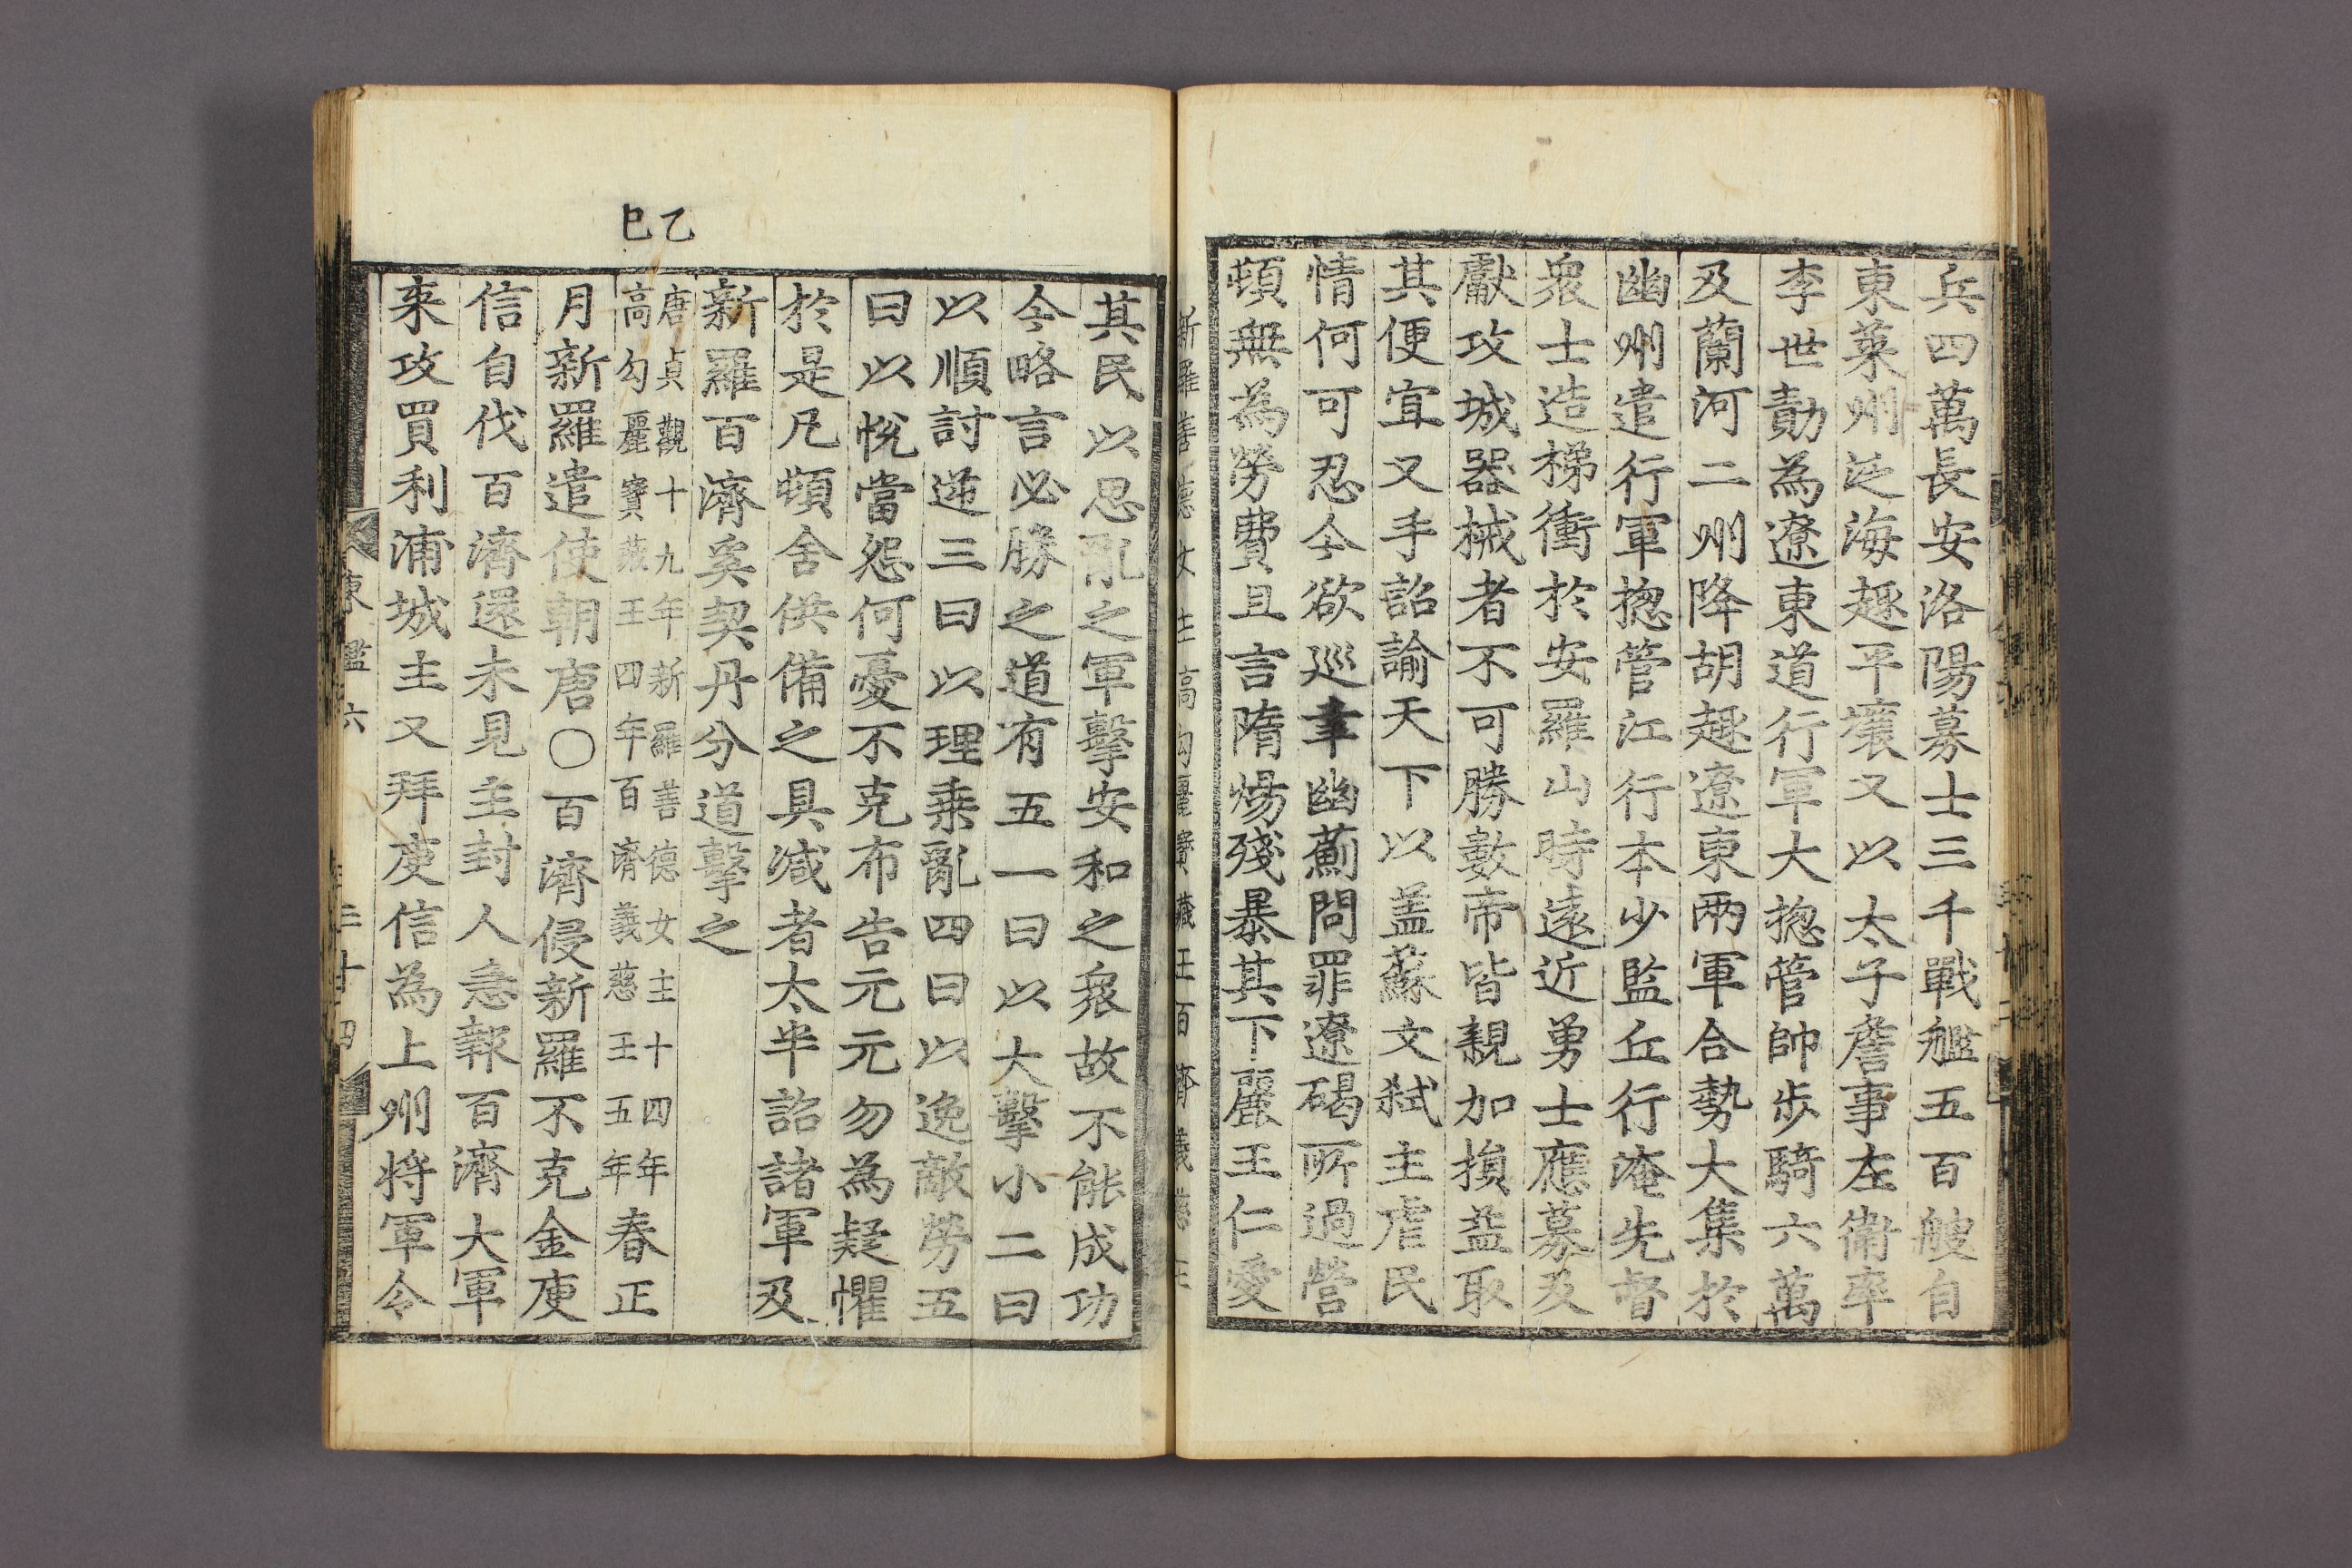 兵四萬長安洛陽募士三千戰艦五百艘自
東萊州泛海趣平壤又以太子詹事左衛率
李世勣為遼東道行軍大摠管帥步騎六萬
及蘭河二州降胡趣遼東兩軍合勢大集於
幽州遣行軍摠管江行本少監丘行淹先督
衆士造梯衝於安羅山時遠近勇士應募及
獻攻城器械者不可勝數帝皆親加損益取
其便宜又手詔諭天下以盖蘇文弑主虐民
情何可忍今欲巡幸幽薊問罪遼碣所過營
頓無為勞費且言隋煬殘暴其下麗王仁愛
新羅善德女主高勾麗寶藏王百濟義慈王
其民以思亂之軍擊安和之衆故不能成功
今略言必勝之道有五一曰以大擊小二曰
以順討逆三曰以理乘亂四曰以逸敵勞五
曰以悅當怨何憂不克布告元元勿為疑懼
於是凡頓舍供備之具減者太半詔諸軍及
新羅百濟奚契丹分道擊之
乙巳
唐貞觀十九年新羅善德女主十四年
高勾麗寶藏王四年百濟義慈王五年
春正
月新羅遣使朝唐○百濟侵新羅不克金庾
信自伐百濟還未見主封人急報百濟大軍
來攻買利浦城主又拜庾信為上州將軍令
東鑑六
三十四